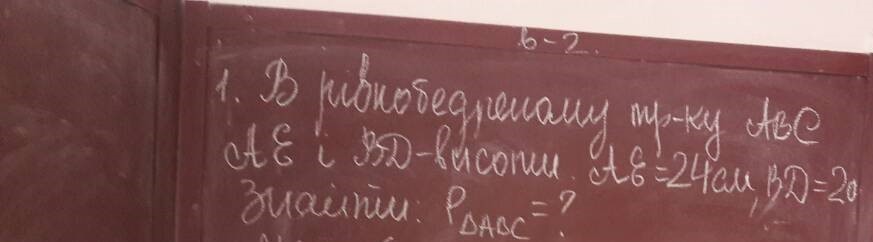 в-2.
1. В рівнобедреному тр-ку АВС
АЕ і ВD-висоти. АЕ=24см, ВD=20
Знайти: Р∆АВС=?